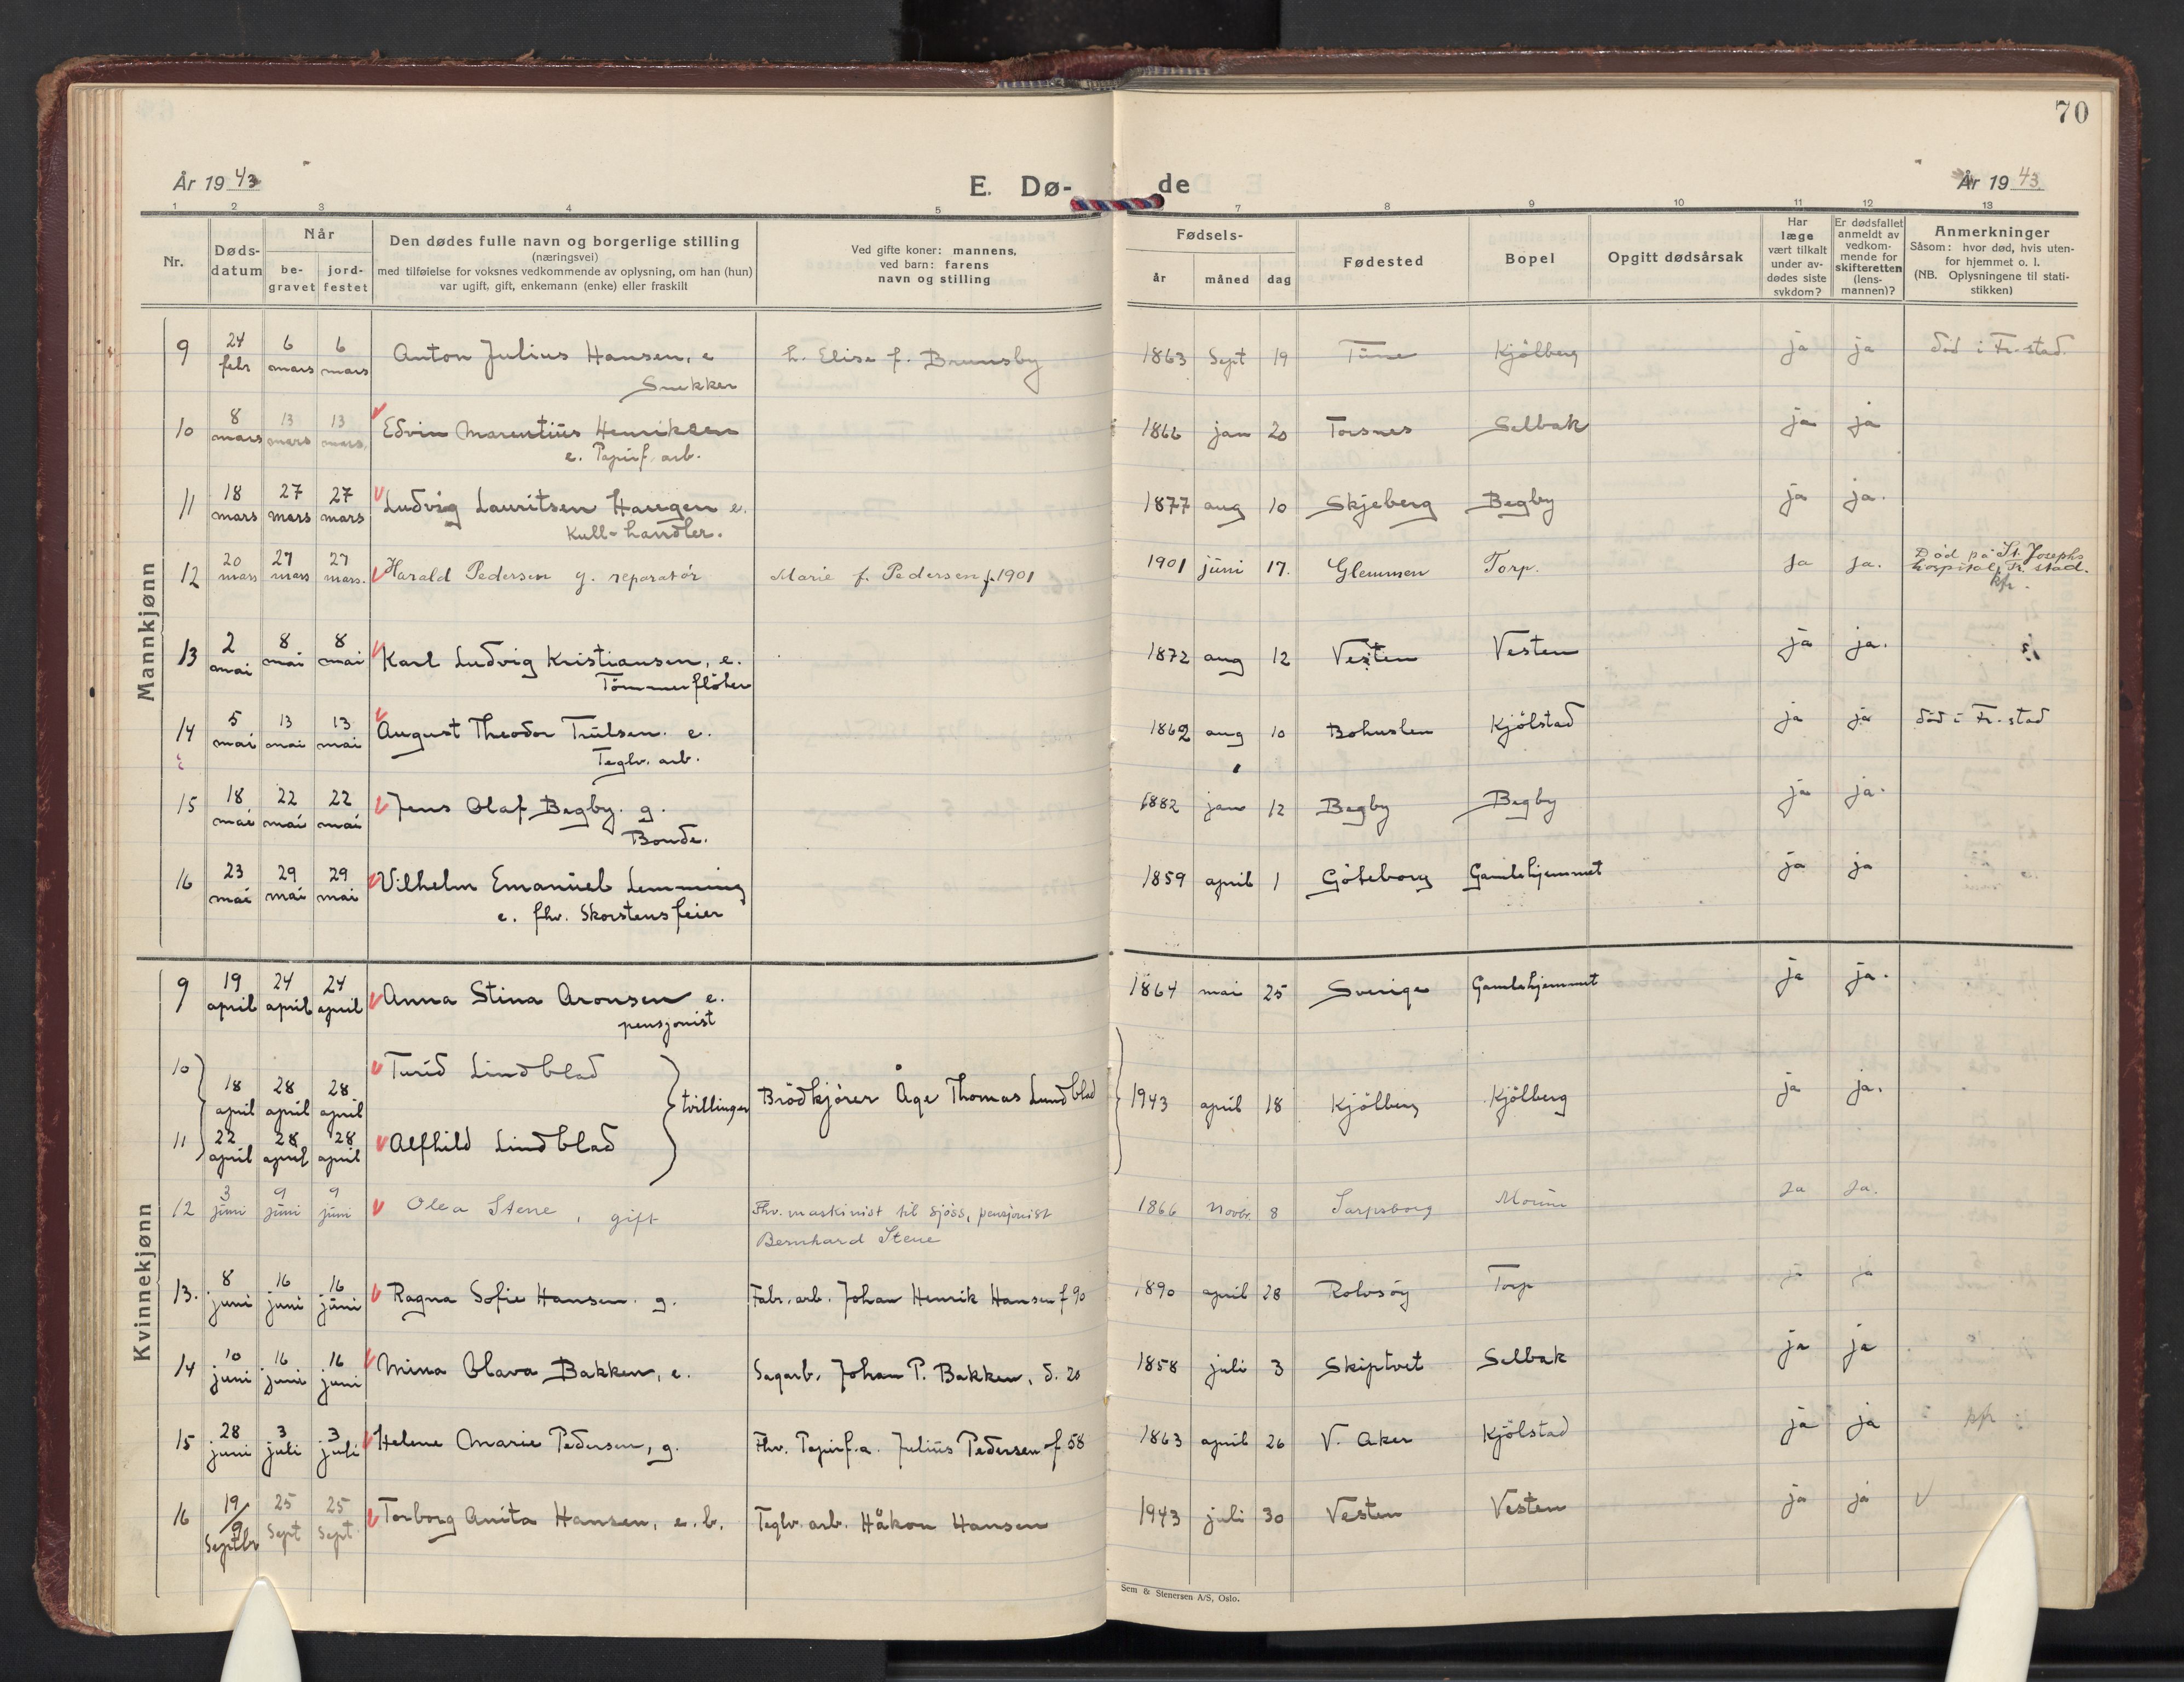 70
År 1943
E. Dø-
de
År 1943.
1 2 3 4 5 7 8 9 10 11 12 13
Nr.
Døds-
datum
Når
be-
gravet
jord-
festet
Den dødes fulle navn og borgerlige stilling
(næringsvei)
med tilføielse for voksnes vedkommende av oplysning, om han (hun)
var ugift, gift, enkemann (enke) eller fraskilt
Ved gifte koner: mannens,
ved barn: farens
navn og stilling
Fødsels-
år måned dag
Fødested
Bopel
Opgitt dødsårsak
Har
læge
vært tilkalt
under av-
dødes siste
sykdom?
Er dødsfallet
anmeldt av
vedkom-
mende for
skifteretten
(lens-
mannen)?
Anmerkninger
Såsom: hvor død, hvis uten-
for hjemmet o. l.
(NB. Oplysningene til stati-
stikken)
Mannkjønn
9 24 febr 6 mars 6 mars Anton Julius Hansen, e h. Elise f. Brunsby 1863 Sept 19 Tune Kjölberg ja ja död i Fr.stad.
Snekker
10 8 mars 13 mars 13 mars. Edvin Marentius Henriksen 1866 jan 20 Torsnes Selbak ja ja
e. Papirf. arb.
11 18 mars 27 mars 27 mars Ludvig Lauritsen Haugen e. 1877 aug 10 Skjeberg Begby ja ja.
Kull-handler.
12 20 mars 27 mars 27 mars. Harald Pedersen g. reparatör Marie f. Pedersen f. 1901 1901 juni 17. Glemmen Torp. Ja ja. Död på St. Josephs
hospital, Fr. stad.
kfr.
13 2 mai 8 mai 8 mai Karl Ludvig Kristiansen, e. 1872 aug 12 Vesten Vesten ja ja.
Tömmerflöter
14 5 mai 13 mai 13 mai August Theodor Trulsen. e. 1862 aug 10 Bohuslen Kjölstad ja ja död i Fr. stad
Teglv. arb.
15 18 mai 22 mai 22 mai Jens Olaf Begby. g. 1882 jan 12 Begby Begby ja ja.
Bonde.
16 23 mai 29 mai 29 mai Vilhelm Emanuel Lemming 1859 april 1 Göteborg Gamlehjemmet ja ja
e. fhv. Skorstensfeier
Kvinnekjønn
9 19 april 24 april 24 april Anna Stina Aronsen e. 1864 mai 25 Sverige Gamlehjemmet ja ja.
pensjonist
10 18 april 28 april 28 april Turid Lindblad
tvillinger Brödkjörer Åge Thomas Lundblad 1943 april 18 Kjölberg Kjölberg ja ja.
11 22 april 28 april 28 april Alfhild Lindblad
12 3 juni 9 juni 9 juni Olea Stene, gift Fhv. maskinist til sjöss, pensjonist 1866 Novbr 8 Sarpsborg Ja Ja.
Bernhard Stene
13. 8 juni 16 juni 16 juni Ragna Sofie Hansen. g. Fabr. arb. Johan Henrik Hansen f 90 1890 april 28 Rolvsöy Torp ja ja
14 10 juni 16 juni 16 juni Mina Olava Bakken, e. Sagarb. Johan P. Bakken, d. 20 1858 juli 3 Skiptvet Selbak ja ja
15 28 juni 3 juli 3 juli Helene Marie Pedersen, g. Fhv. Papirf.a. Julius Pedersen f 58 1863 april 26 V. Aker Kjölstad ja ja kfr
16 19/9 Septbr 25 Sept 25 Sept Torborg Anita Hansen, e. b. Teglv. arb. Håkon Hansen 1943 juli 30 Vesten Vesten ja ja
Sem & Stenersen A/S, Oslo.